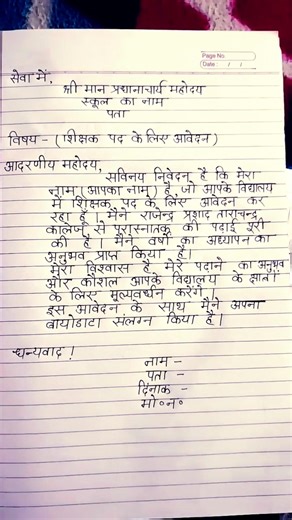 Page No.
Date : / /
सेवा में,
श्री मान प्रधानाचार्य महोदय
स्कूल का नाम
पता
विषय - (शिक्षक पद के लिए आवेदन)
आदरणीय महोदय,
सविनय निवेदन है कि मेरा
नाम (आपका नाम) है, जो आपके विद्यालय
में शिक्षक पद के लिए आवेदन कर
रहा है। मैंने राजेन्द्र प्रशाद ताराचन्द्र
कालेज से परास्नातक की पढ़ाई पूरी
की है। मैंने वर्षो का अध्यापन का
अनुभव प्राप्त किया है।
मेरा विश्वास है, मेरे पढाने का अनुभव
और कौशल आपके विद्यालय के छात्रों
के लिए मूल्यवर्धन करेंगे।
इस आवेदन के साथ मैंने अपना
बायोडाटा संलग्न किया है।
धन्यवाद !
नाम -
पता -
दिनांक -
मो०न०